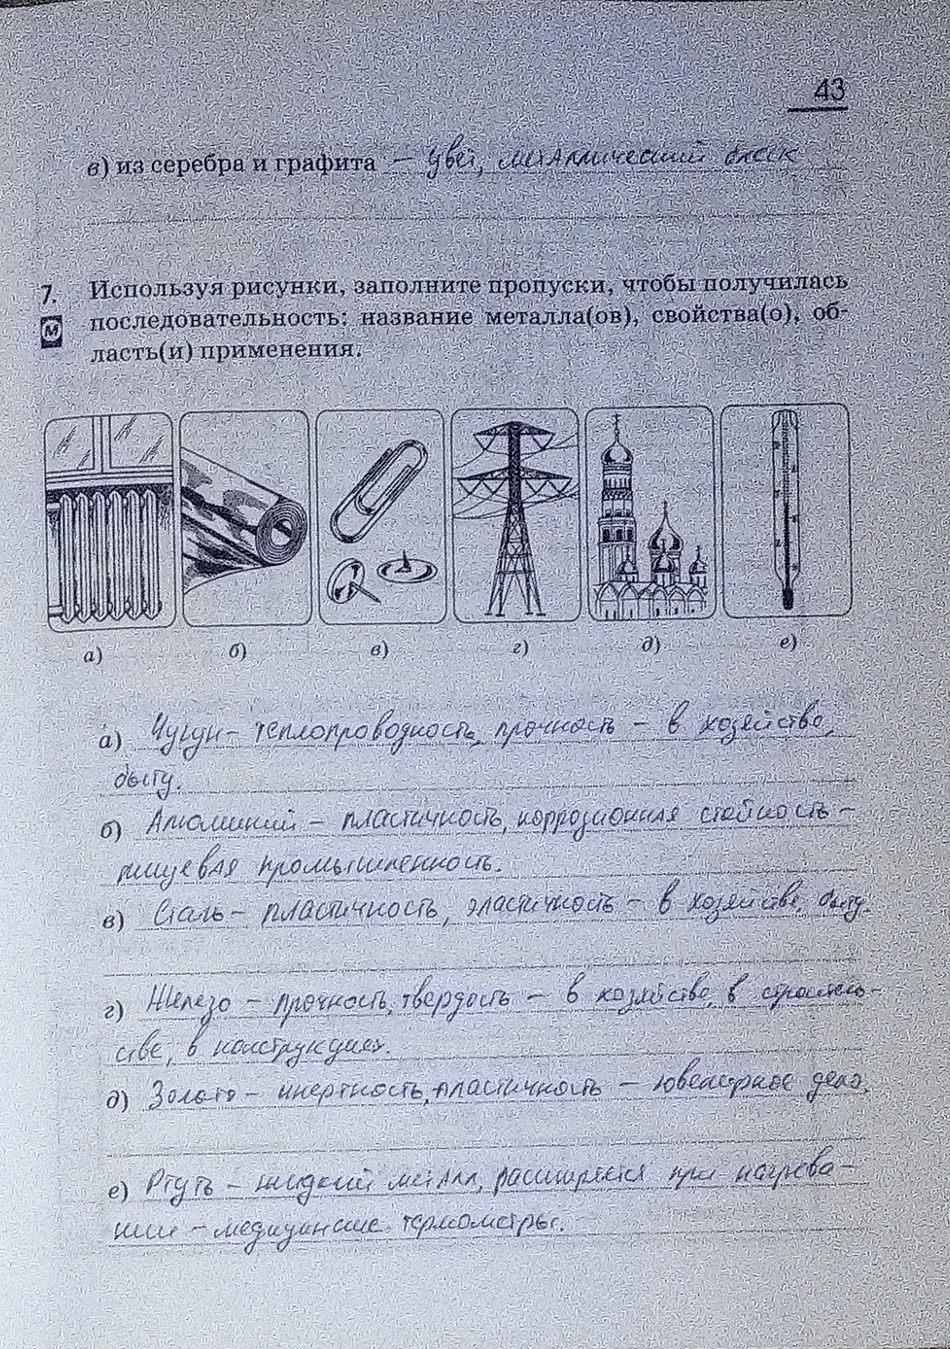 43
в) из серебра и графита – цвет, металлический блеск
7. Используя рисунки, заполните пропуски, чтобы получилась
М последовательность: название металла(ов), свойства(о), об-
ласть(и) применения.
а) б) в) г) д) е)
а) Чугун – теплопроводность, прочность – в хозяйстве,
быту.
б) Алюминий – пластичность, коррозионная стойкость –
пищевая промышленность.
в) Сталь – пластичность, эластичность – в хозяйстве, быту.
г) Железо – прочность, твердость – в хозяйстве, в строитель-
стве, в конструкциях.
д) Золото – инертность, пластичность – ювелирное дело.
е) Ртуть – жидкий металл, расширяется при нагрева-
нии – медицинские термометры.